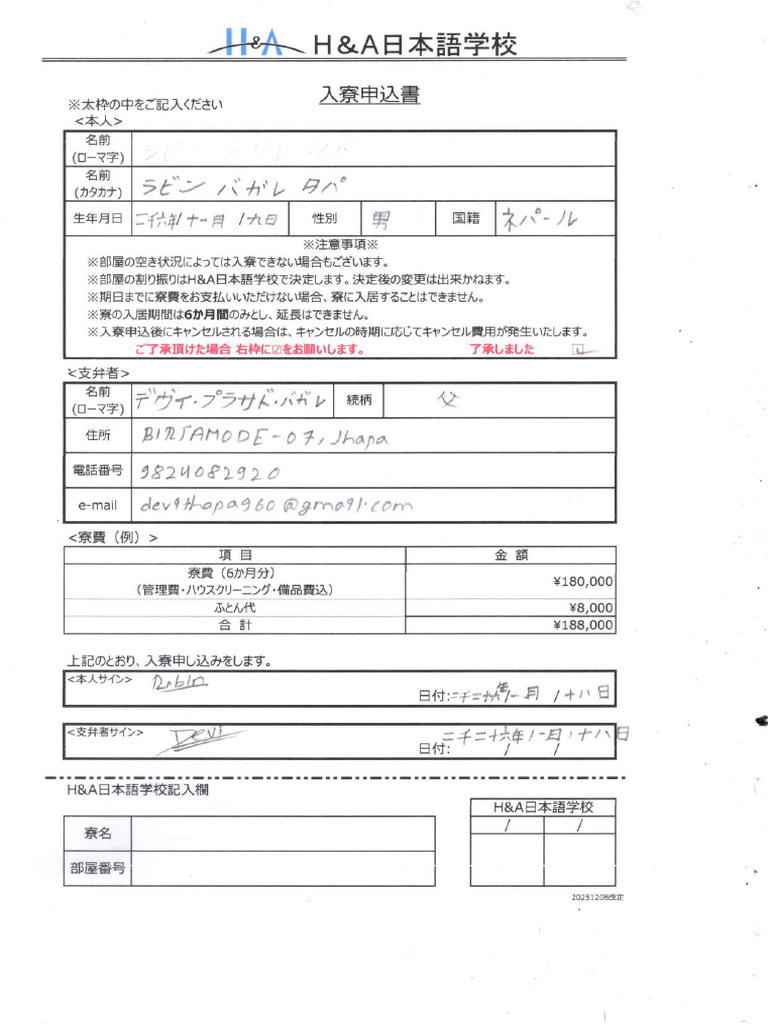 H&A H&A日本語学校
入寮申込書
※太枠の中をご記入ください
<本人>
名前
(ローマ字)
名前
(カタカナ) ラビン バガレ タパ
生年月日 二千六年/十一月/九日 性別 男 国籍 ネパール
※注意事項※
※部屋の空き状況によっては入寮できない場合もございます。
※部屋の割り振りはH&A日本語学校で決定します。決定後の変更は出来かねます。
※期日までに寮費をお支払いいただけない場合、寮に入居することはできません。
※寮の入居期間は6か月間のみとし、延長はできません。
※入寮申込後にキャンセルされる場合は、キャンセルの時期に応じてキャンセル費用が発生いたします。
ご了承頂けた場合 右枠に☑をお願いします。 了承しました ☑
<支弁者>
名前
(ローマ字) デヴィ・プラサド・バガレ 続柄 父
住所 BIRTAMODE-07, Jhapa
電話番号 9824082920
e-mail dev9thapa960@gma9l.com
<寮費(例)>
項目 金額
寮費(6か月分)
(管理費・ハウスクリーニング・備品費込) ¥180,000
ふとん代 ¥8,000
合計 ¥188,000
上記のとおり、入寮申し込みをします。
<本人サイン> Rabin
日付:二千二十六年/一月/十八日
<支弁者サイン> Devi 二千二十六年/一月/十八日
日付: / /
H&A日本語学校記入欄
寮名
部屋番号
H&A日本語学校
/ /
20251208改定